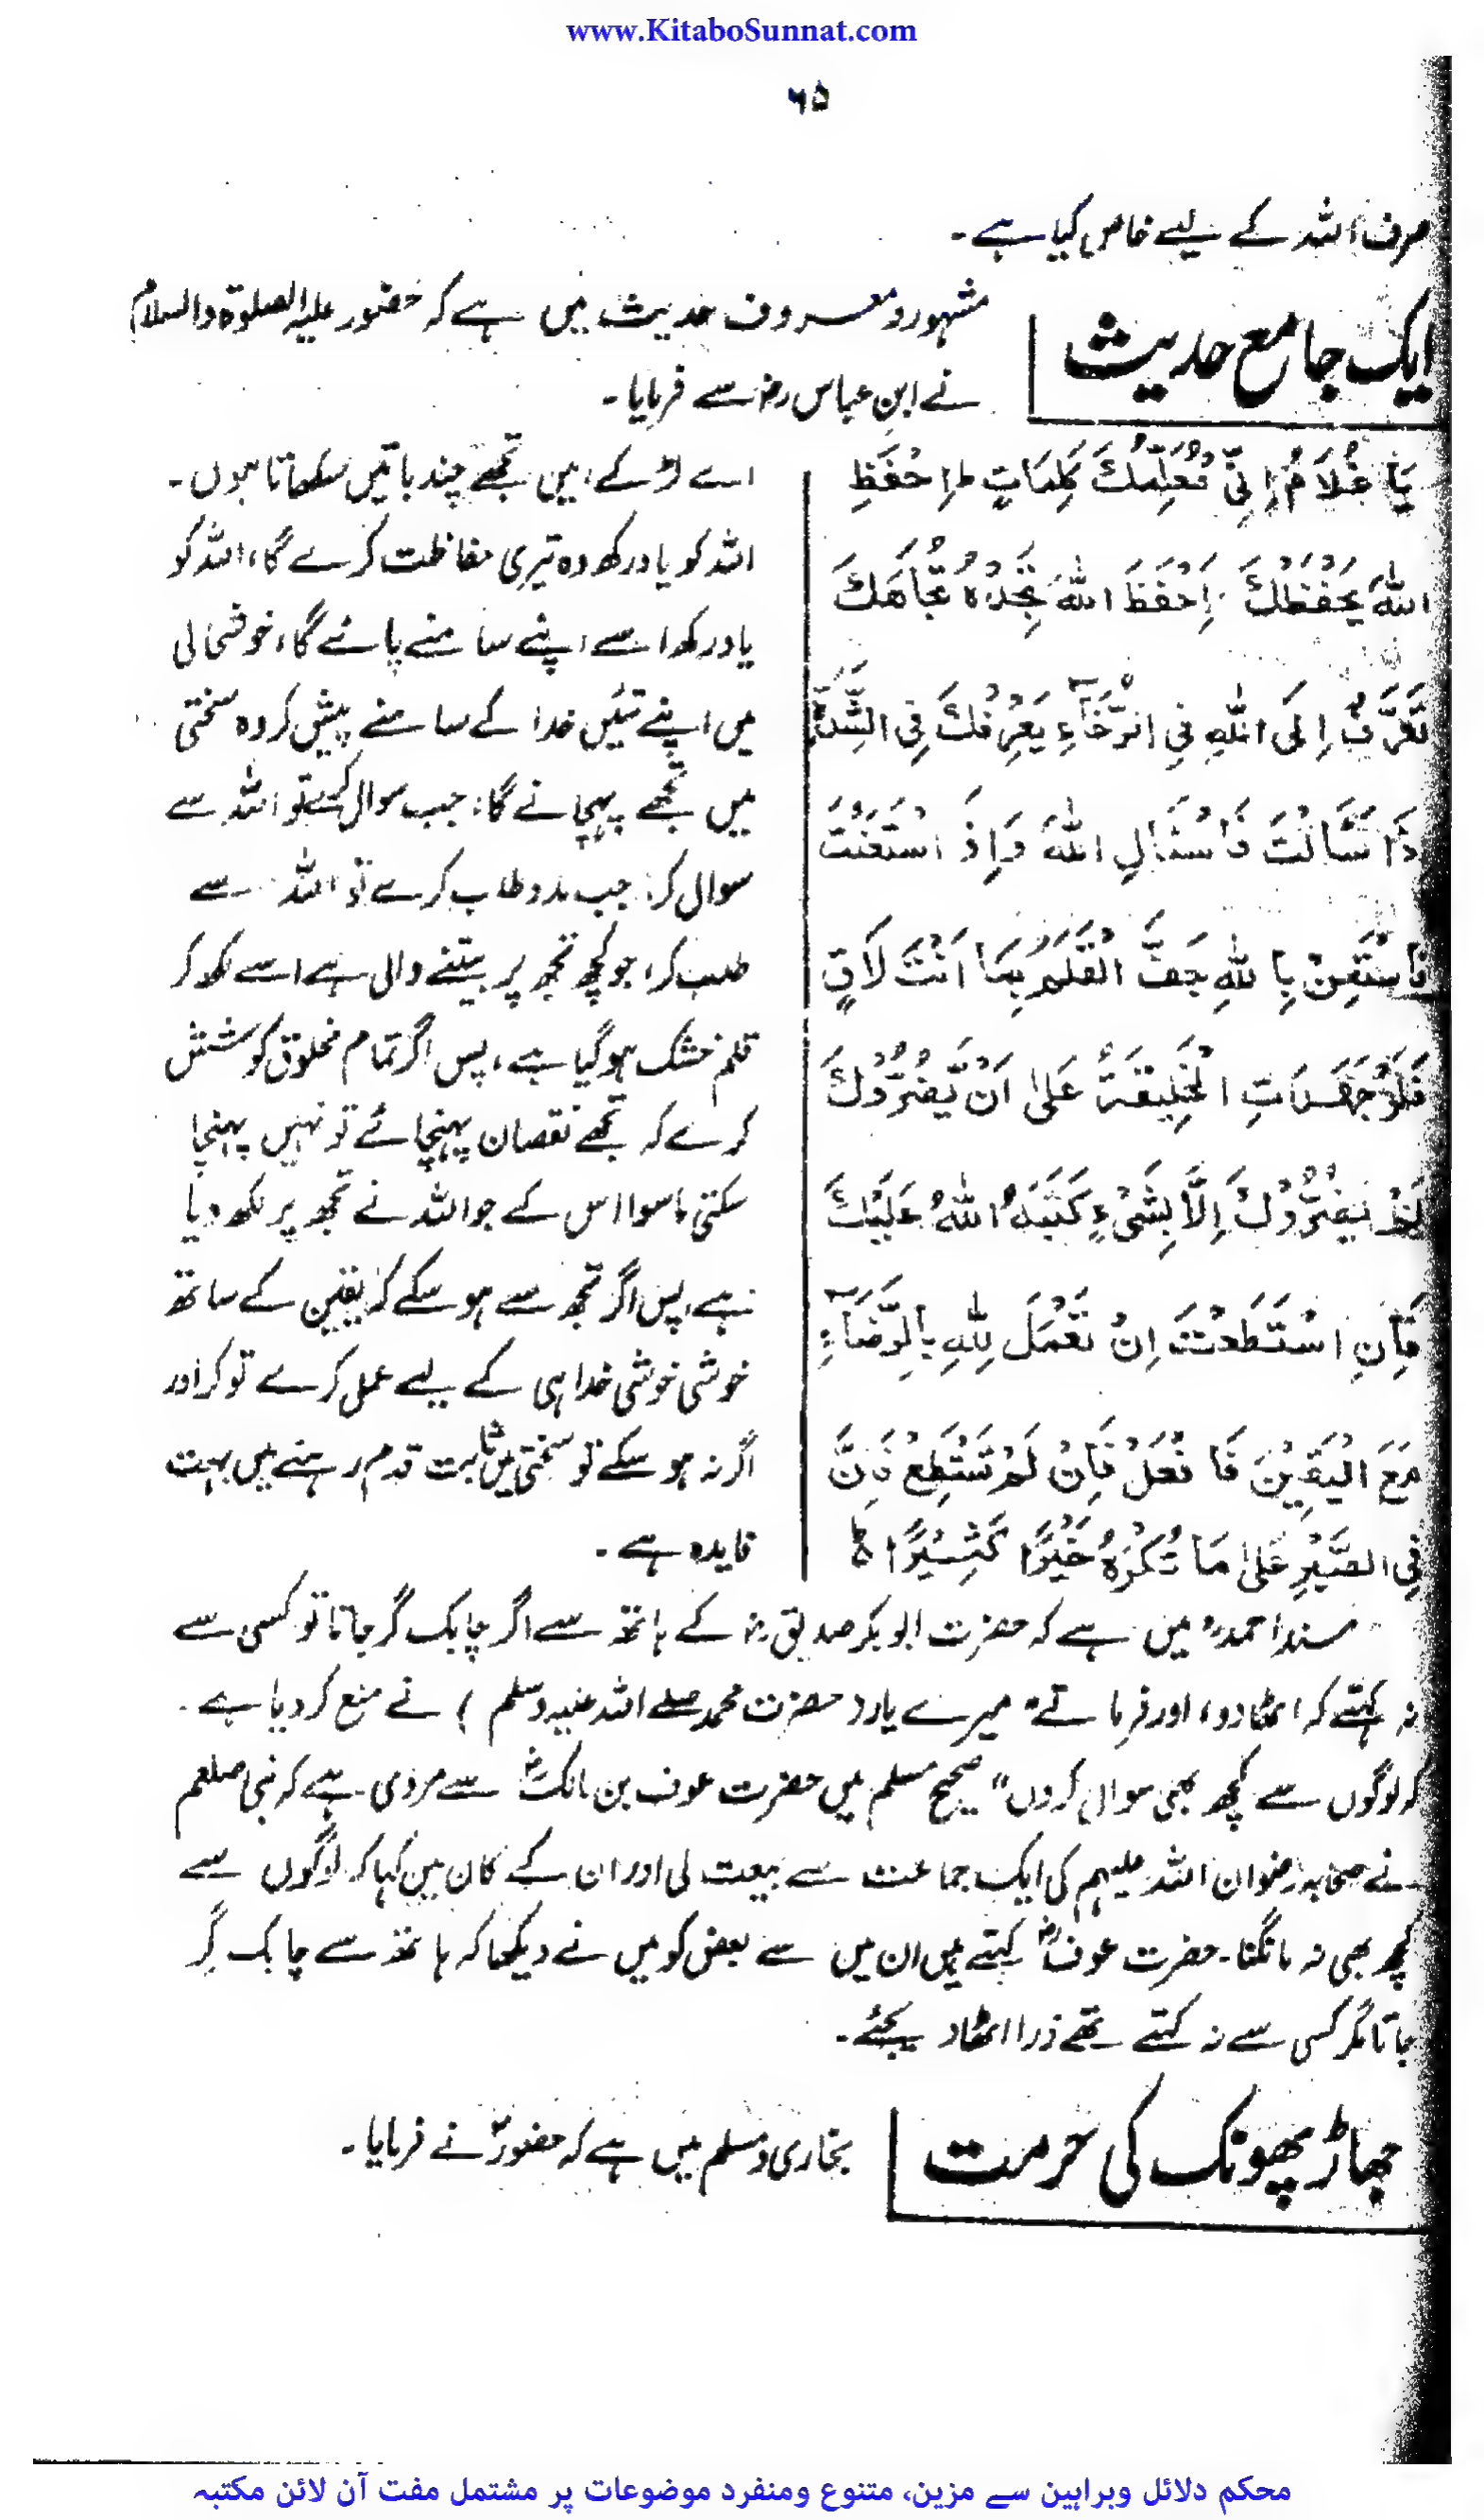 www.KitaboSunnat.com
۶۵
صرف اللہ کے لیے خاص کیا ہے۔
ایک جامع حدیث
مشہور و معروف حدیث میں ہے کہ حضور علیہ الصلوٰۃ والسلام
نے ابن عباس رضؓ سے فرمایا۔
يَا غُلَامُ اِنِّيْ مُعَلِّمُكَ كَلِمَاتٍ ط اِحْفَظِ
اللّٰهَ يَحْفَظْكَ اِحْفَظَ اللّٰهَ تَجِدْهُ تُجَاهَكَ
تَعَرَّفْ اِلَى اللّٰهِ فِي الرَّخَاءِ يَعْرِفْكَ فِي الشِّدَّةِ
ذَا سَأَلْتَ فَاسْئَالِ اللّٰهَ وَاِذَ اسْتَعَنْتَ
فَاسْتَعِنْ بِاللّٰهِ جَفَّ الْقَلَمُ بِمَا اَنْتَ لَاقٍ
فَلَوْ جَهَدَاتِ الْخَلِيْقَةُ عَلىٰ اَنْ يَّضُرُّوْكَ
لَمْ يَضُرُّوْكَ اِلَّا بِشَيْءٍ كَتَبَهُ اللّٰهُ عَلَيْكَ
فَاِنِ اسْتَطَعْتَ اِنْ تَعْمَلَ لِلّٰهِ بِالرِّضَاءِ
مَعَ الْيَقِيْنَ فَا فْعَلْ فَاِنْ لَمْ تَسْتَطِعْ فَاِنَّ
فِي الصَّبْرِ عَلىٰ مَا تُكْرَهُ خَيْرًا كَثِيْرًا ط
اے لڑکے، میں تجھے چند باتیں سکھاتا ہوں۔
اللہ کو یاد رکھ وہ تیری حفاظت کرے گا، اللہ کو
یاد رکھ اسے اپنے سامنے پائے گا، خوشحالی
میں اپنے تئیں خدا کے سامنے پیش کر وہ سختی
میں تجھے پہچانے گا، جب سوال کرے تو اللہ سے
سوال کر، جب مدد طلب کرے تو اللہ سے
طلب کر، جو کچھ تجھ پر بیتنے والی ہے اسے لکھ کر
قلم خشک ہو گیا ہے، پس اگر تمام مخلوق کوشش
کرے کہ تجھے نقصان پہنچائے تو نہیں پہنچا
سکتی ماسوا اس کے جو اللہ نے تجھ پر لکھ دیا
ہے، پس اگر تجھ سے ہو سکے کہ یقین کے ساتھ
خوشی خوشی خدا ہی کے لیے عمل کرے تو کر اور
اگر نہ ہو سکے تو سختی میں ثابت قدم رہنے میں بہت
فایدہ ہے۔
مسند احمدؒ میں ہے کہ حضرت ابوبکر صدیق رضؓ کے ہاتھ سے اگر چابک گر جاتا تو کسی سے
نہ کہتے کہ اٹھا دو، اور فرماتے "میرے یار (حضرت محمد صلے اللہ علیہ وسلم) نے منع کر دیا ہے۔
کہ لوگوں سے کچھ بھی سوال کروں" صحیح مسلم میں حضرت عوف بن مالکؓ سے مروی ہے کہ نبی صلعم
نے صحابہ رضوان اللہ علیہم کی ایک جماعت سے بیعت لی اور ان کے کان میں کہا کہ لوگوں سے
کچھ بھی نہ مانگنا۔ حضرت عوفؓ کہتے ہیں ان میں سے بعض کو میں نے دیکھا کہ ہاتھ سے چابک گر
جاتا مگر کسی سے نہ کہتے تھے ذرا اٹھا دیجئے۔
جھاڑ پھونک کی حرمت
بخاری و مسلم میں ہے کہ حضورؐ نے فرمایا۔
محکم دلائل وبراہین سے مزین، متنوع ومنفرد موضوعات پر مشتمل مفت آن لائن مکتبہ